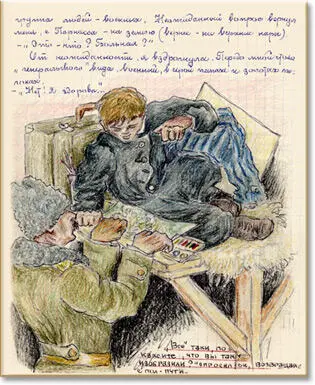 группа людей - военных. Неожиданный вопрос вернул
меня, с Парнаса - на землю (верне - на верхние нары)
- "Это - кто? Больная?" -
От неожиданности, я вздрогнула. Передо мной стоял
генеральского вида военный, в серой папахе и золотых по-
гонах.
- "Нет! Я здорова..."
"Всё таки, по-
кажите, что вы там
изобразили?" - спросил он, возвращая
с пи-пути.